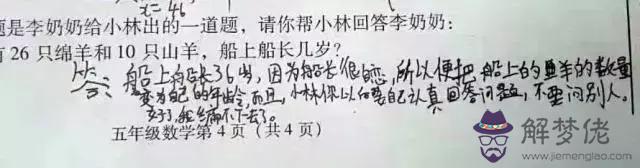 x=46
题是李奶奶给小林出的一道题，请你帮小林回答李奶奶：
有 26 只绵羊和 10 只山羊，船上船长几岁？
答：船上船长36岁，因为船长很恋，所以便把船上的羊的数量
变为自己的年龄，而且，小林你以后要自己认真回答问题，不要问别人。
我编不下去了。
五年级数学第 4 页（共 4 页）
解梦佬
www.jiemenglao.com